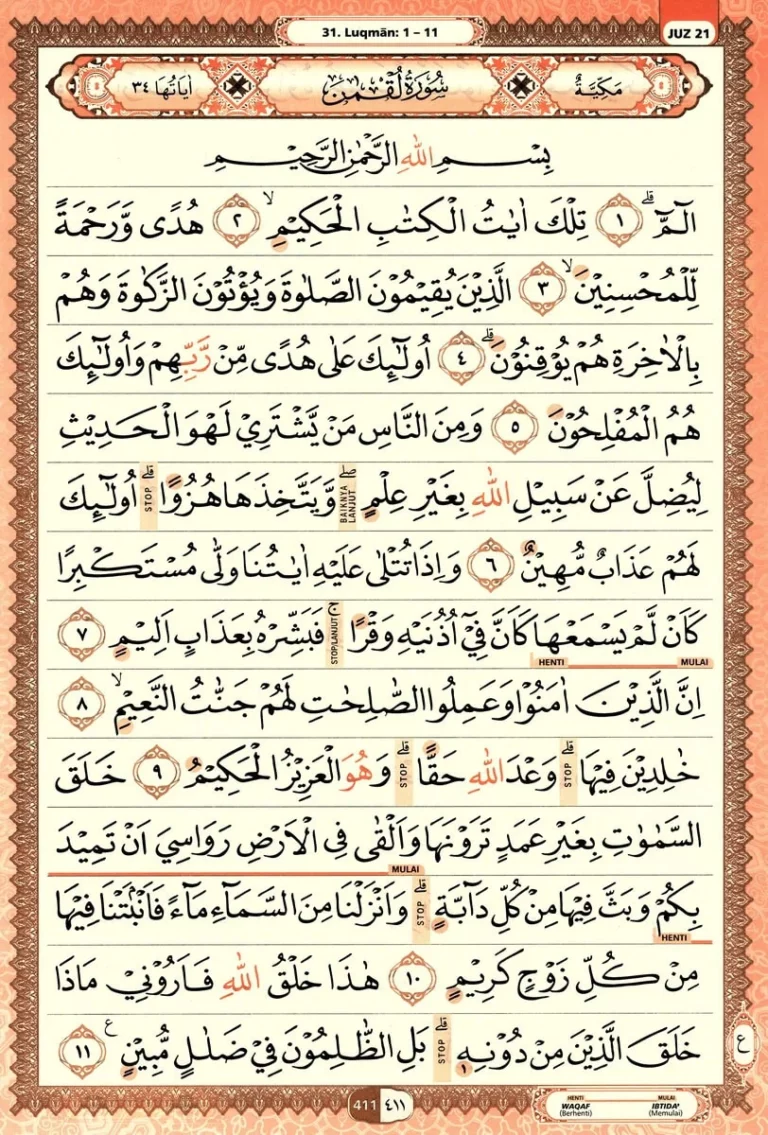 31. Luqmān: 1 – 11
JUZ 21
مَكِّيَّةٌ سُوْرَةُ لُقْمٰنَ اٰيَاتُهَا ٣٤
بِسْمِ اللّٰهِ الرَّحْمٰنِ الرَّحِيْمِ
الۤمّۤ ۗ ١ تِلْكَ اٰيٰتُ الْكِتٰبِ الْحَكِيْمِۙ ٢ هُدًى وَّرَحْمَةً
لِّلْمُحْسِنِيْنَۙ ٣ الَّذِيْنَ يُقِيْمُوْنَ الصَّلٰوةَ وَيُؤْتُوْنَ الزَّكٰوةَ وَهُمْ
بِالْاٰخِرَةِ هُمْ يُوْقِنُوْنَۗ ٤ اُولٰۤىِٕكَ عَلٰى هُدًى مِّنْ رَّبِّهِمْ وَاُولٰۤىِٕكَ
هُمُ الْمُفْلِحُوْنَ ٥ وَمِنَ النَّاسِ مَنْ يَّشْتَرِيْ لَهْوَ الْحَدِيْثِ
لِيُضِلَّ عَنْ سَبِيْلِ اللّٰهِ بِغَيْرِ عِلْمٍۖ BAIKNYA LANJUT وَّيَتَّخِذَهَا هُزُوًاۗ STOP اُولٰۤىِٕكَ
لَهُمْ عَذَابٌ مُّهِيْنٌ ٦ وَاِذَا تُتْلٰى عَلَيْهِ اٰيٰتُنَا وَلّٰى مُسْتَكْبِرًا
كَاَنْ لَّمْ يَسْمَعْهَا كَاَنَّ فِيْٓ اُذُنَيْهِ وَقْرًاۚ STOP/LANJUT فَبَشِّرْهُ بِعَذَابٍ اَلِيْمٍ ٧
HENTI MULAI
اِنَّ الَّذِيْنَ اٰمَنُوْا وَعَمِلُوا الصّٰلِحٰتِ لَهُمْ جَنّٰتُ النَّعِيْمِۙ ٨
خٰلِدِيْنَ فِيْهَاۗ STOP وَعْدَ اللّٰهِ حَقًّاۗ STOP وَهُوَ الْعَزِيْزُ الْحَكِيْمُ ٩ خَلَقَ
السَّمٰوٰتِ بِغَيْرِ عَمَدٍ تَرَوْنَهَا وَاَلْقٰى فِى الْاَرْضِ رَوَاسِيَ اَنْ تَمِيْدَ
MULAI
بِكُمْ وَبَثَّ فِيْهَا مِنْ كُلِّ دَاۤبَّةٍۗ STOP وَاَنْزَلْنَا مِنَ السَّمَاۤءِ مَاۤءً فَاَنْۢبَتْنَا فِيْهَا
HENTI
مِنْ كُلِّ زَوْجٍ كَرِيْمٍ ١٠ هٰذَا خَلْقُ اللّٰهِ فَاَرُوْنِيْ مَاذَا
خَلَقَ الَّذِيْنَ مِنْ دُوْنِهٖۗ STOP بَلِ الظّٰلِمُوْنَ فِيْ ضَلٰلٍ مُّبِيْنٍ ع ١١
ع
411 ٤١١
HENTI MULAI
WAQAF IBTIDA'
(Berhenti) (Memulai)